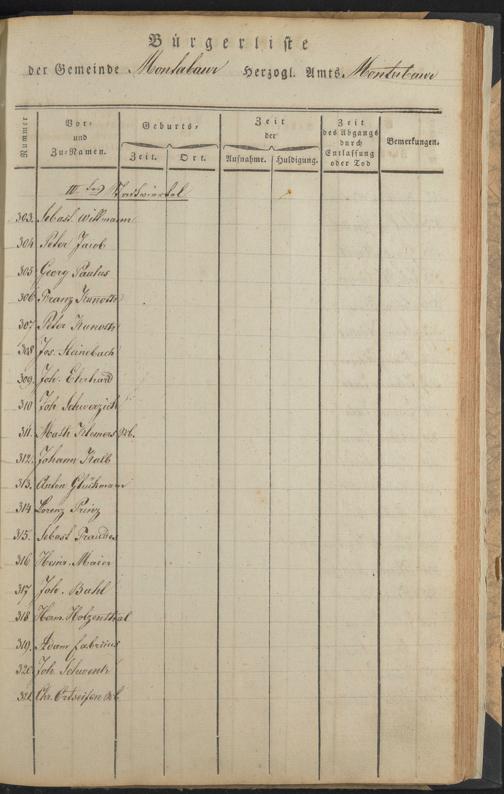 Bürgerliste
der Gemeinde Montabaur Herzogl. Amts Montabaur
Nummer
Vor- und Zu-Namen.
Geburts-
Zeit. Ort.
Zeit der
Aufnahme. Huldigung.
Zeit des Abgangs durch Entlassung oder Tod
Bemerkungen.
III tes Stadtviertel
303. Sebast. Wittmann
304 Peter Jacob
305 Georg Paulus
306 Franz Kunoth
307 Peter Kunoth
308 Jos. Steinebach
309. Joh. Eberhard
310 Joh Schwerzich
311. Math Klemers Wb.
312. Johann Kalb
313. Anton Glükmann
314 Lorenz Prinz
315. Sebast
316 Heinr. Maier
317 Joh. Bahl
318 Holzenthal
319. Adam Fabrius
320. Joh. Schwenk
321. Chr. Ortseifen Wb